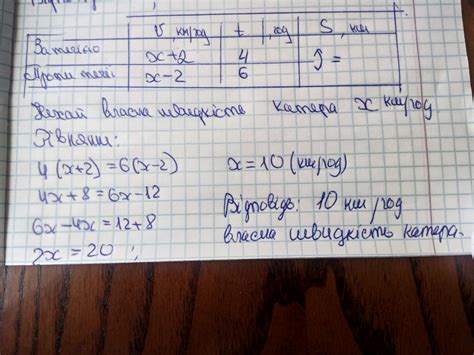 V км/год t, год S, км
За течією x+2 4 } =
Проти течії x-2 6
Нехай власна швидкість катера x км/год
Рівняння:
4(x+2)=6(x-2) x=10 (км/год)
4x+8=6x-12
Відповідь: 10 км/год
6x-4x=12+8
власна швидкість катера.
2x=20;